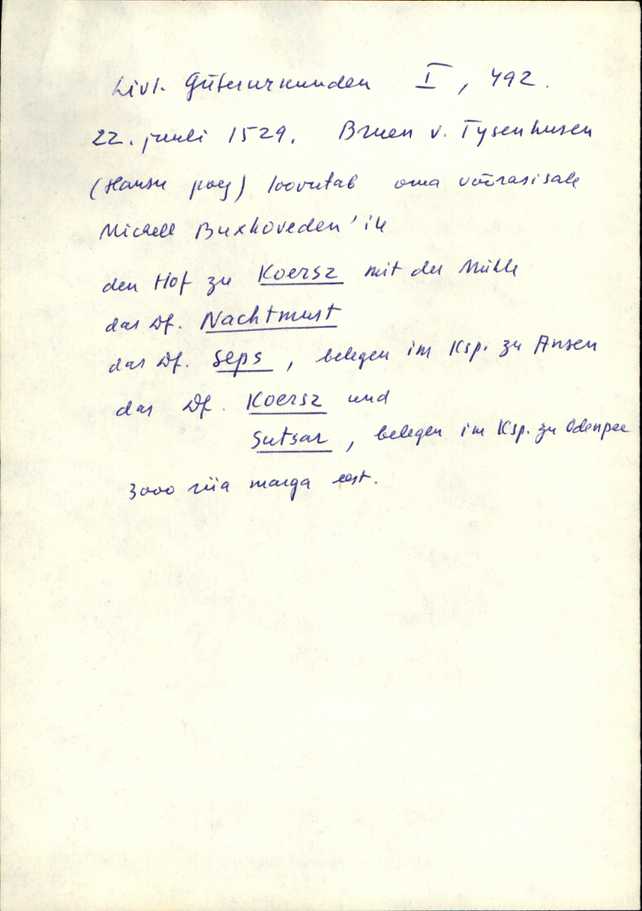 Livl. Güterurkunden I, 492.
22. juuli 1529. Bruen v. Tysenhusen
(Hansu poeg) loovutab oma võõrasisale
Michell Buxhoveden'ile
den Hof zu Koersz mit der Mühle
das Df. Nachtmust
das Df. Seps, belegen im Ksp. zu Ansen
das Df. Koersz und
Sutsar, belegen im Ksp. zu Odenpee
3000 riia marga eest.